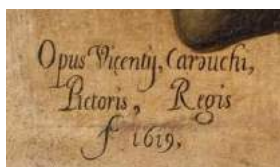 Opus Vicentij, Carduchi,
Pictoris, Regis
f 1619,